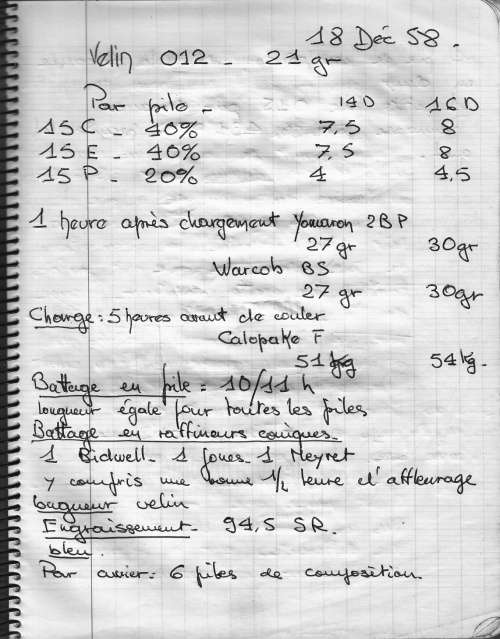 18 Déc 58.
Velin 012 - 21 gr
Par pile - 14D 16D
15 C - 40% 7,5 8
15 E - 40% 7,5 8
15 P - 20% 4 4,5
1 heure après chargement Yomaron 2BP
27 gr 30gr
Warcob BS
27 gr 30gr
Charge: 5 heures avant de couler
Calopake F
51 kg 54 kg.
Battage en pile = 10/11 h
longueur égale pour toutes les piles
Battage en raffineurs coniques.
1 Bidwell - 1 Jones - 1 Neyret
y compris une bonne 1/2 heure d'affleurage
longueur velin
Engraissement - 94,5 SR.
bleu.
Par cuvier: 6 piles de composition.